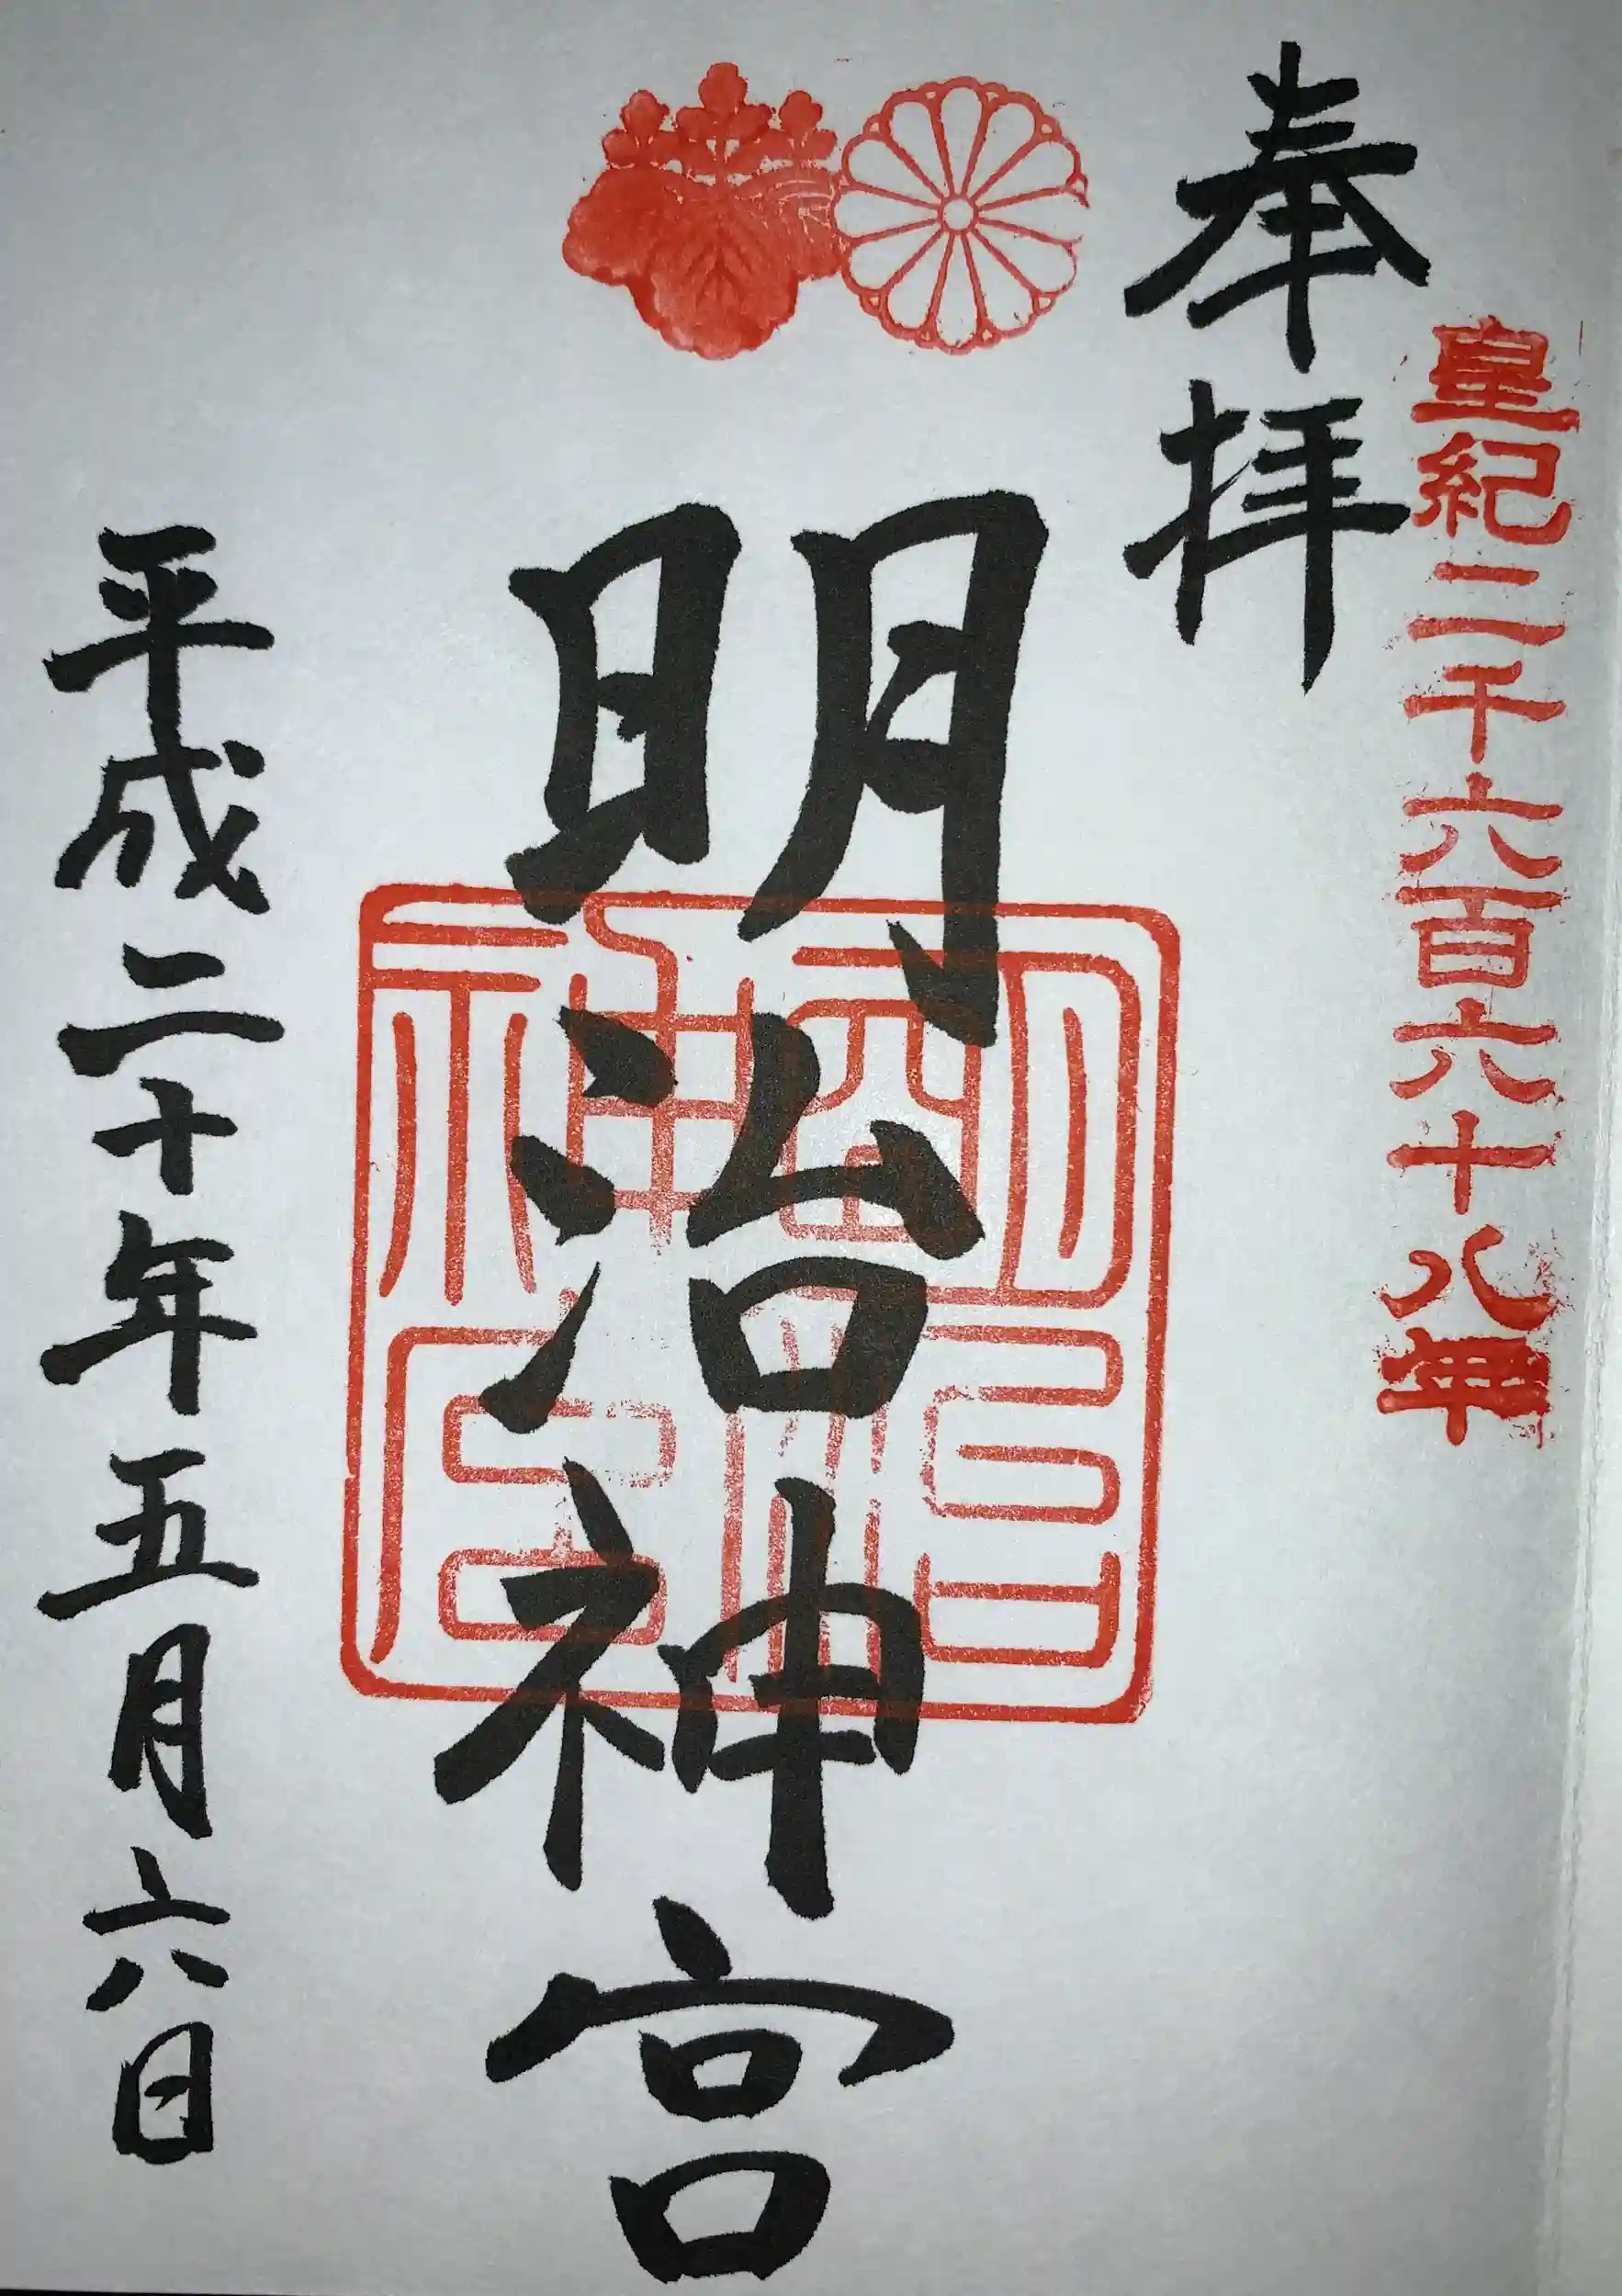 皇紀二千六百六十八年
奉拝
明治神宮
明治
神宮
平成二十年五月六日